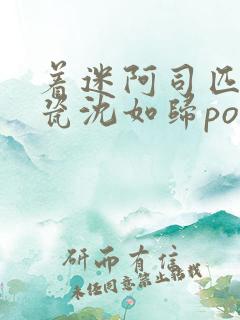 着迷阿司匹
瓷沈如归po
研而有信
未经同意禁止转载